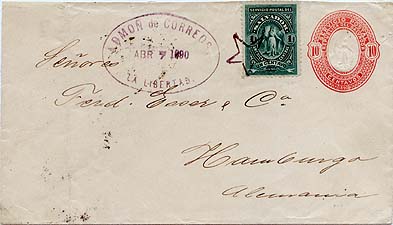 ADMON de CORREOS
ABR 7 1890
LA LIBERTAD.
SERVICIO POSTAL DEL
SALVADOR
1 1
UN CENTAVO
10 10
CENTAVOS
Señores
Ferd. Esser & Cª
Hamburgo
Alemania